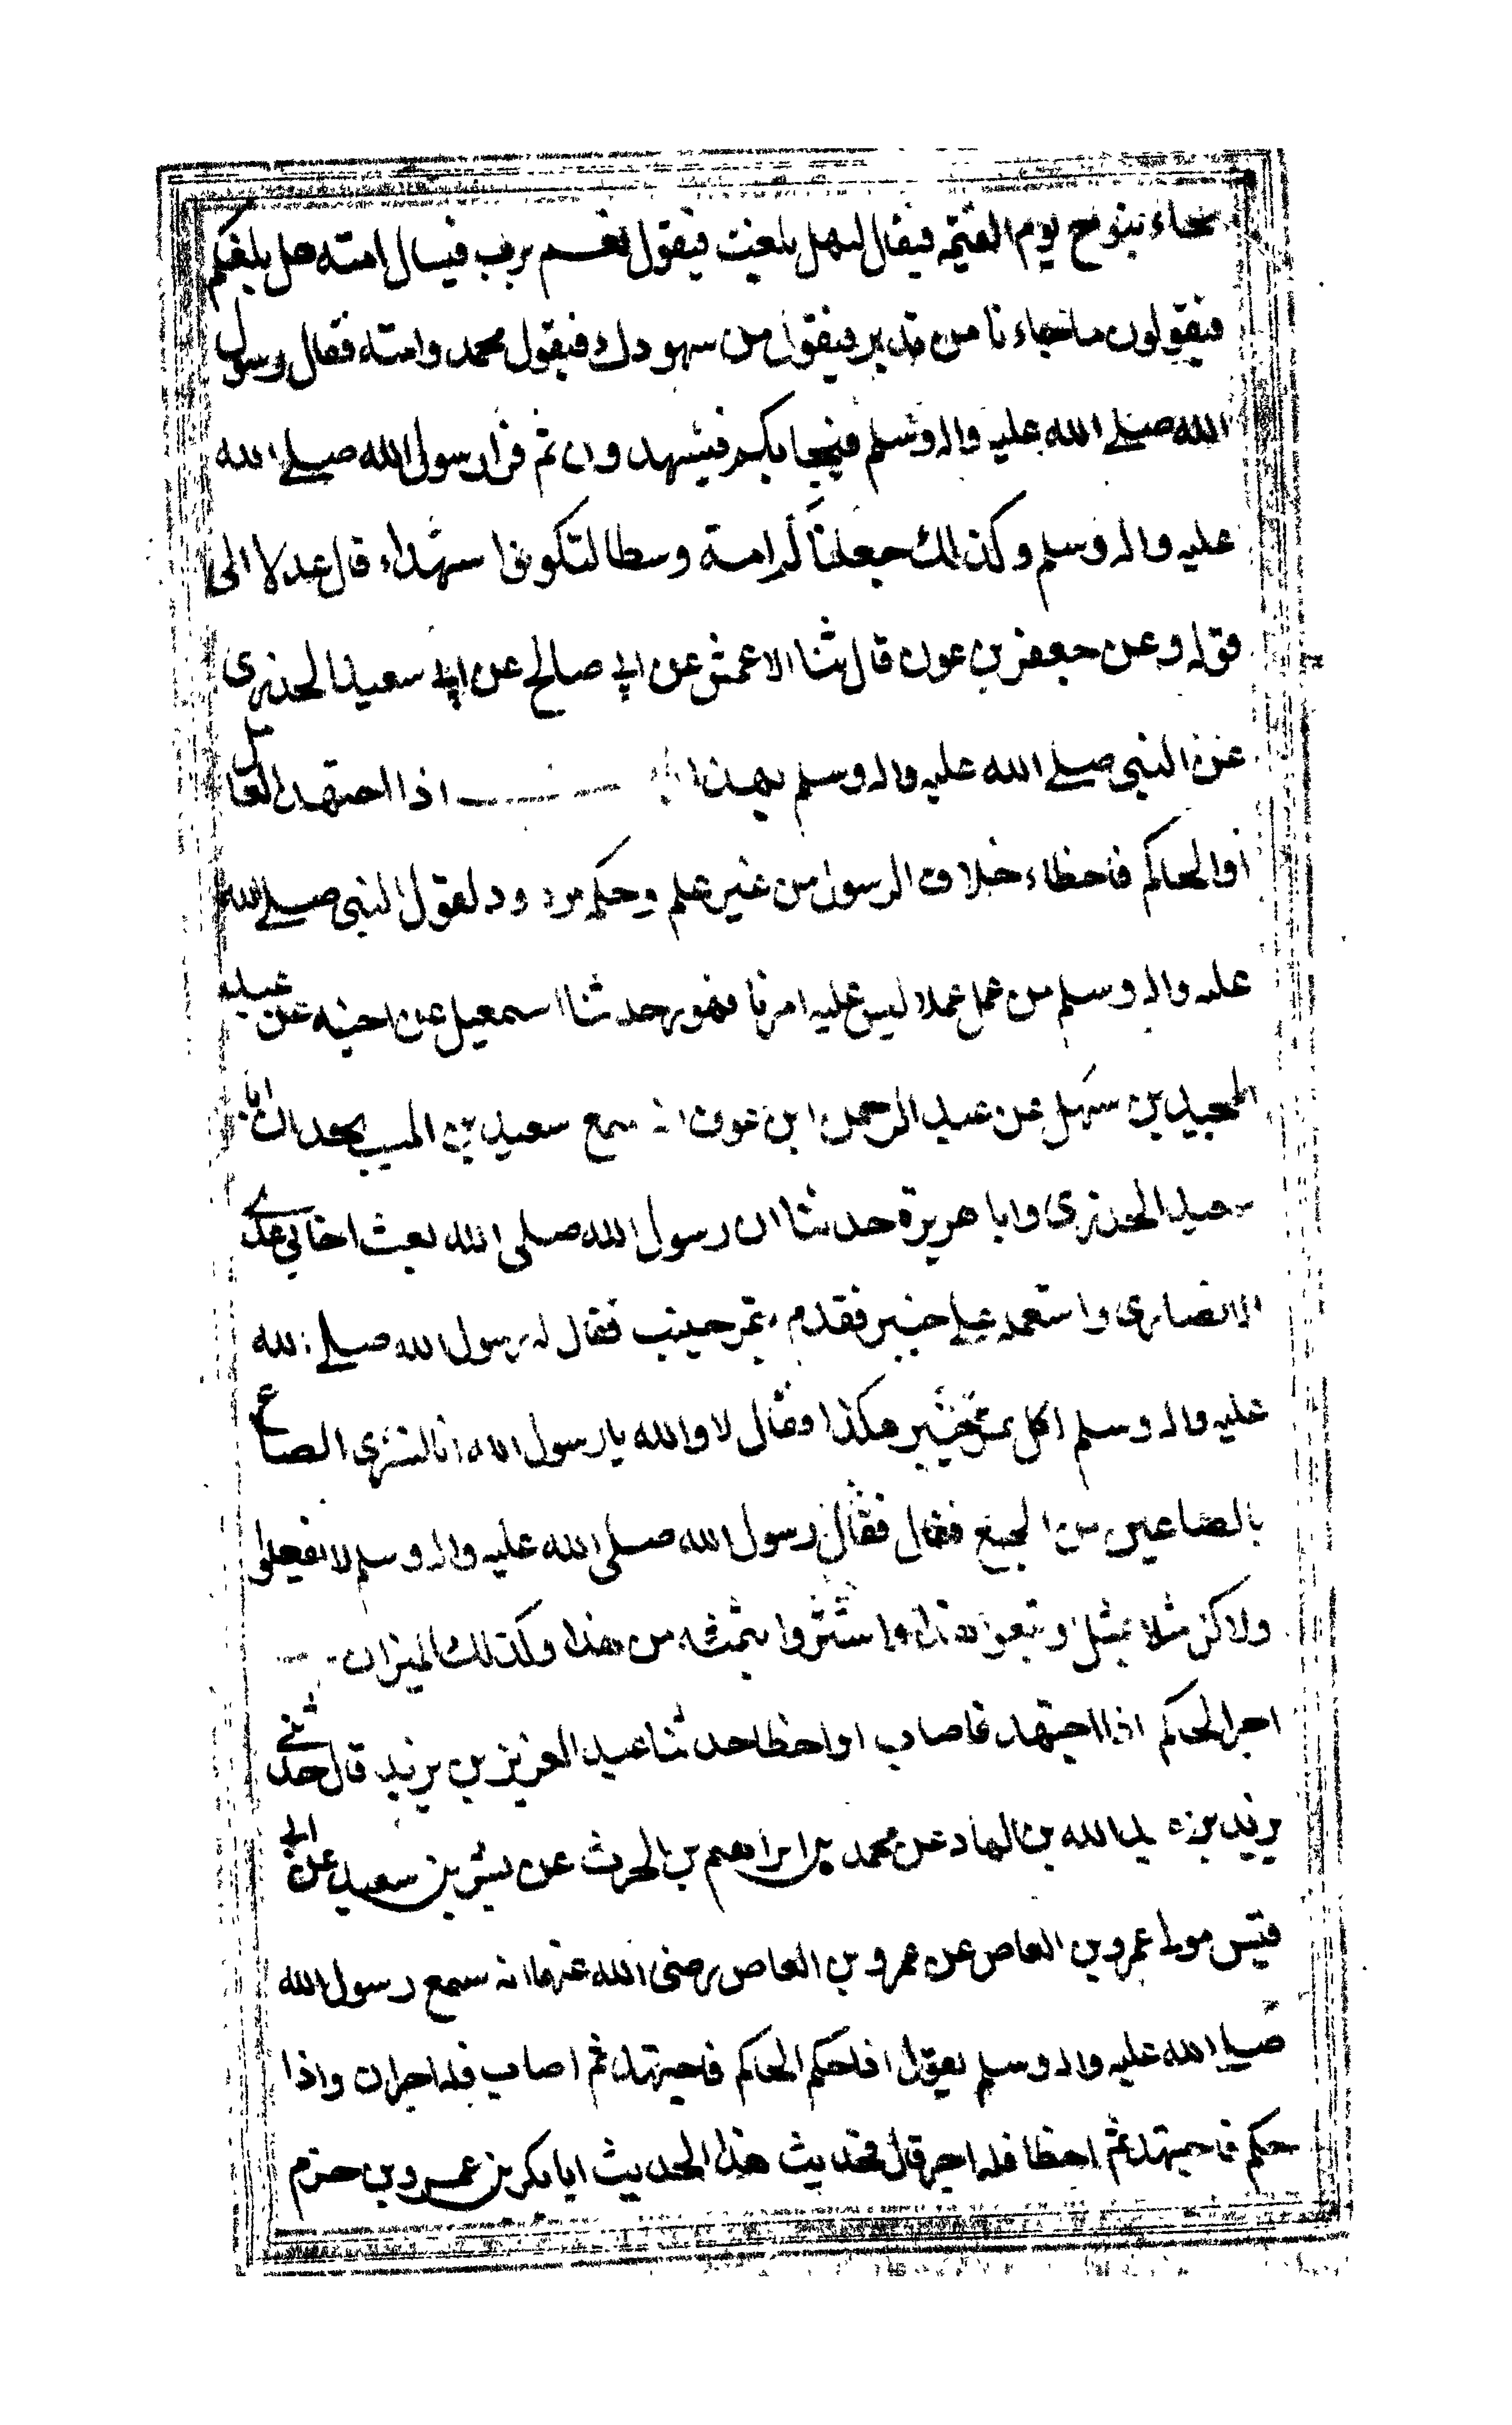 يجاء بنوح يوم القيمة فيقال له هل بلغت فيقول نعم يرب فيسال امته هل بلغكم
فيقولون ما جاءنا من نذير فيقول من شهودك فيقول محمد وامته فقال رسول
الله صلى الله عليه واله وسلم فيجا بكم فيشهدون ثم قرا رسول الله صلى الله
عليه واله وسلم وكذلك جعلناكم امة وسطا لتكونوا شهداء قال عدلا الى
قوله وعن جعفر بن عون قال ثنا الاعمش عن ابي صالح عن ابي سعيد الخدري
عن النبي صلى الله عليه واله وسلم بهذا اذا اجتهد العامل
او الحاكم فاخطاء خلاف الرسول من غير علم وحكمه مردود لقول النبي صلى الله
عليه واله وسلم من عمل عملا ليس عليه امرنا فهو رد حدثنا اسمعيل عن اخيه عن عبد
المجيد بن سهل عن عبد الرحمن ابن عوف انه سمع سعيد بن المسيب يحدث ان ابا
سعيد الخدري وابا هريرة حدثنا ان رسول الله صلى الله بعث اخا بني عدي
الانصاري واستعمله على خيبر فقدم بتمر جنيب فقال له رسول الله صلى الله
عليه واله وسلم اكل تمر خيبر هكذا فقال لا والله يا رسول الله انا لنشتري الصاع
بالصاعين من الجمع فقال فقال رسول الله صلى الله عليه واله وسلم لا تفعلوا
ولاكن مثلا بمثل او تبعوا هذا واشتروا بثمنه من هذا وكذلك الميزان
اجر الحاكم اذا اجتهد فاصاب او اخطا حدثنا عبد العزيز بن يزيد قال حدثني
يزيد بن عبد الله بن الهاد عن محمد بن ابراهيم بن الحرث عن بشر بن سعيد عن ابي
قيس مولى عمرو بن العاص عن عمرو بن العاص رضى الله عنهما انه سمع رسول الله
صلى الله عليه واله وسلم يقول اذا حكم الحاكم فاجتهد ثم اصاب فله اجران واذا
حكم فاجتهد ثم اخطا فله اجر قال فحديث هذا الحديث ابا بكر بن عمرو بن حزم